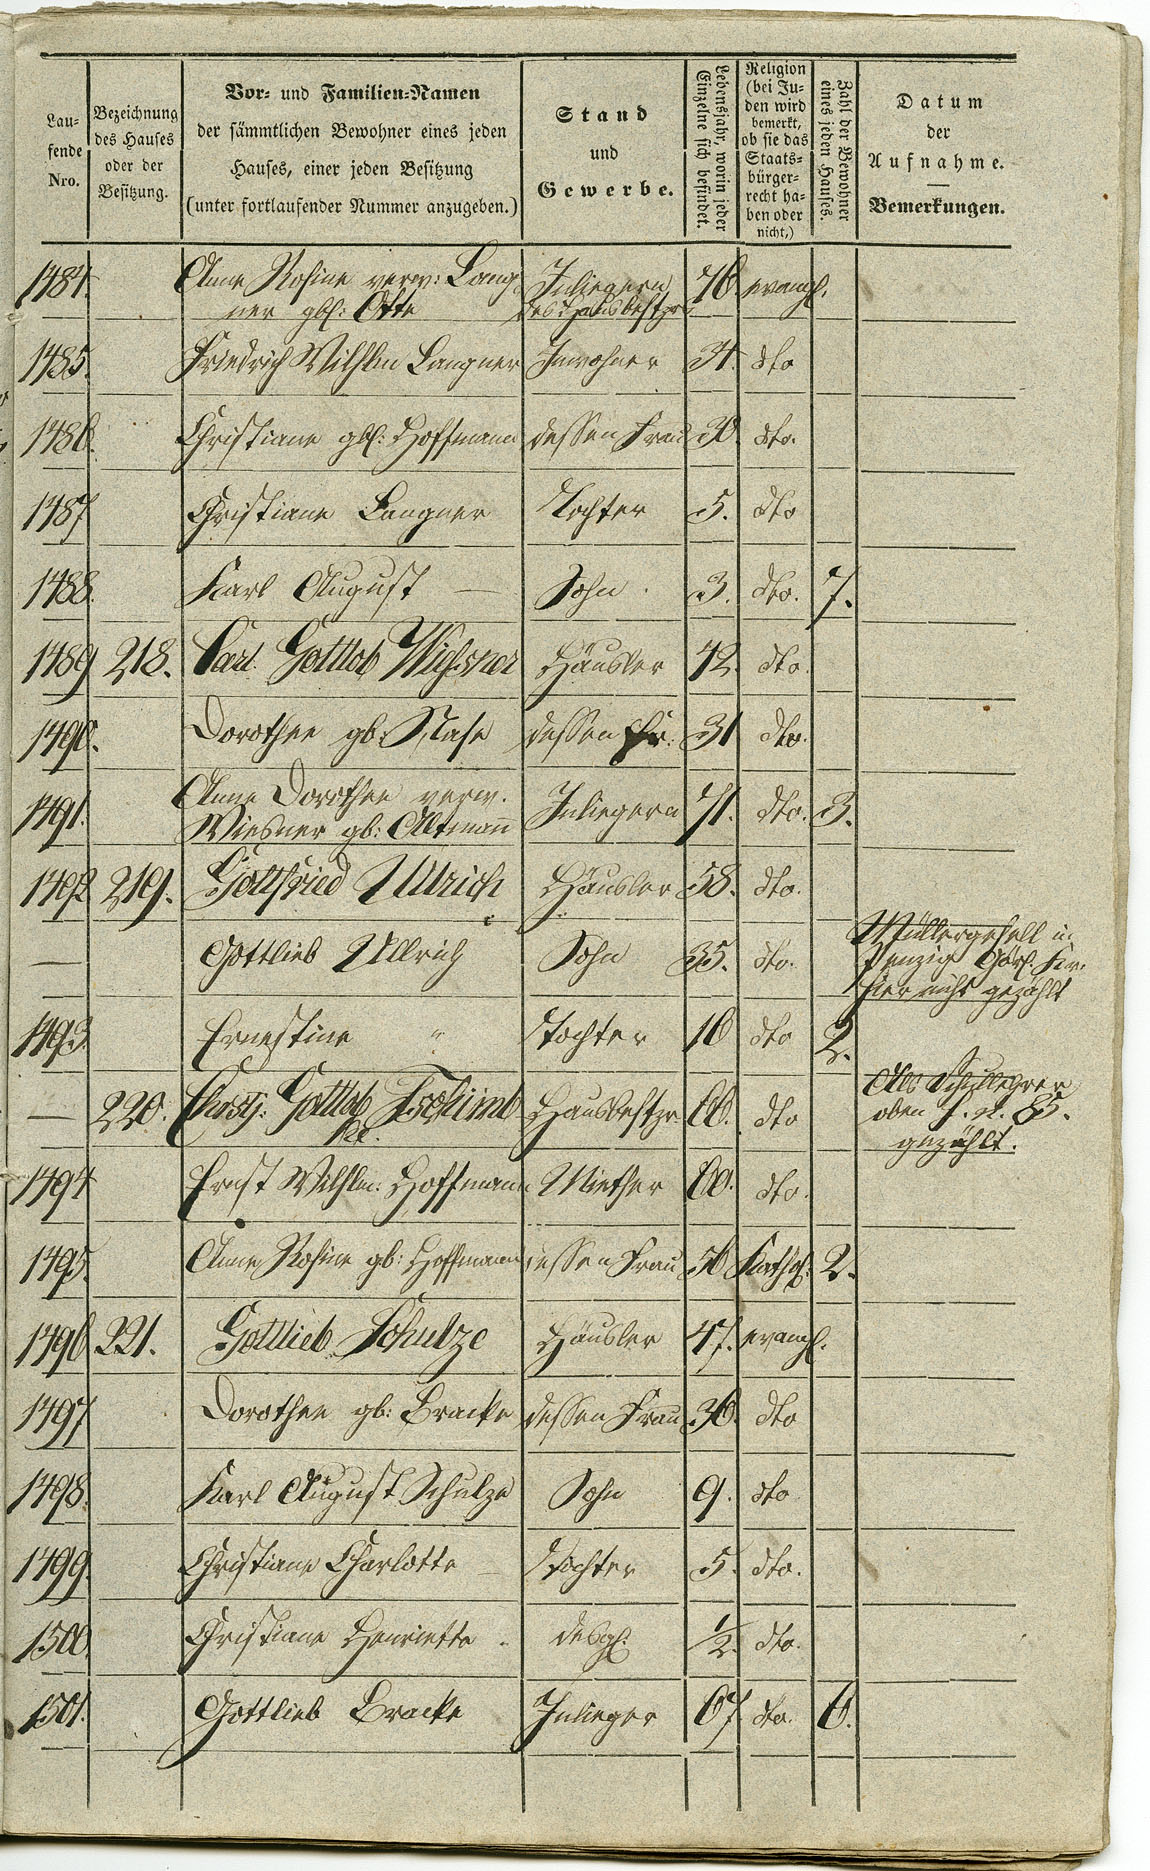 Lau-
fende
Nro.
Bezeichnung
des Hauses
oder der
Besitzung.
Vor- und Familien-Namen
der sämmtlichen Bewohner eines jeden
Hauses, einer jeden Besitzung
(unter fortlaufender Nummer anzugeben.)
Stand
und
Gewerbe.
Lebensjahr, worin jeder
Einzelne sich befindet.
Religion
(bei Ju-
den wird
bemerkt,
ob sie das
Staats-
bürger-
recht ha-
ben oder
nicht,)
Zahl der Bewohner
eines jeden Hauses.
Datum
der
Aufnahme.
Bemerkungen.
1484. Anne Rosine verw: Lang- Inliegern 76. evangl.
ner gbl: Otte des Hausbesitzrs
1485. Friedrich Wilhlm Langner Inwohner 34. dto
1486. Christiane gbl: Hoffmann dessen Frau 30. dto.
1487 Christiane Langner Tochter 5. dto
1488. Karl August — Sohn 3. dto. 7.
1489 218. Carl Gottlob Häusler 42. dto.
1490. Dorothee gb: Nase dessen Fr: 31 dto.
1491. Anne Dorothee verw.
Wiesner gb: Altmann Inliegern 71. dto. 3.
1492 219. Gottfried Ullrich Häusler 58. dto.
— Gottlieb Ullrich Sohn 35. dto. Müllergesell in
Penzig Görl.
hier nicht gezählt
1493. Ernestine " Tochter 16 dto 2.
— 220. Gottlob Hausbesitzr. 66. dto Als Schullehrer
oben f. N. 85.
gezählt.
1494 Ernst Wilhlm: Hoffmann Miether 60. dto.
1495. Anne Rosine gb: Hoffmann dessen Frau 56 Kathol: 2.
1496 221. Gottlieb Schulze Häusler 47. evangl.
1497 Dorothee gb: Bracke dessen Frau 36. dto
1498. Karl August Schulze Sohn 9. dto
1499. Christiane Charlotte — Tochter 5. dto.
1500. Christiane Henriette - desgl. 1/2. dto.
1501. Gottlieb Bracke Inlieger 67 dto. 6.